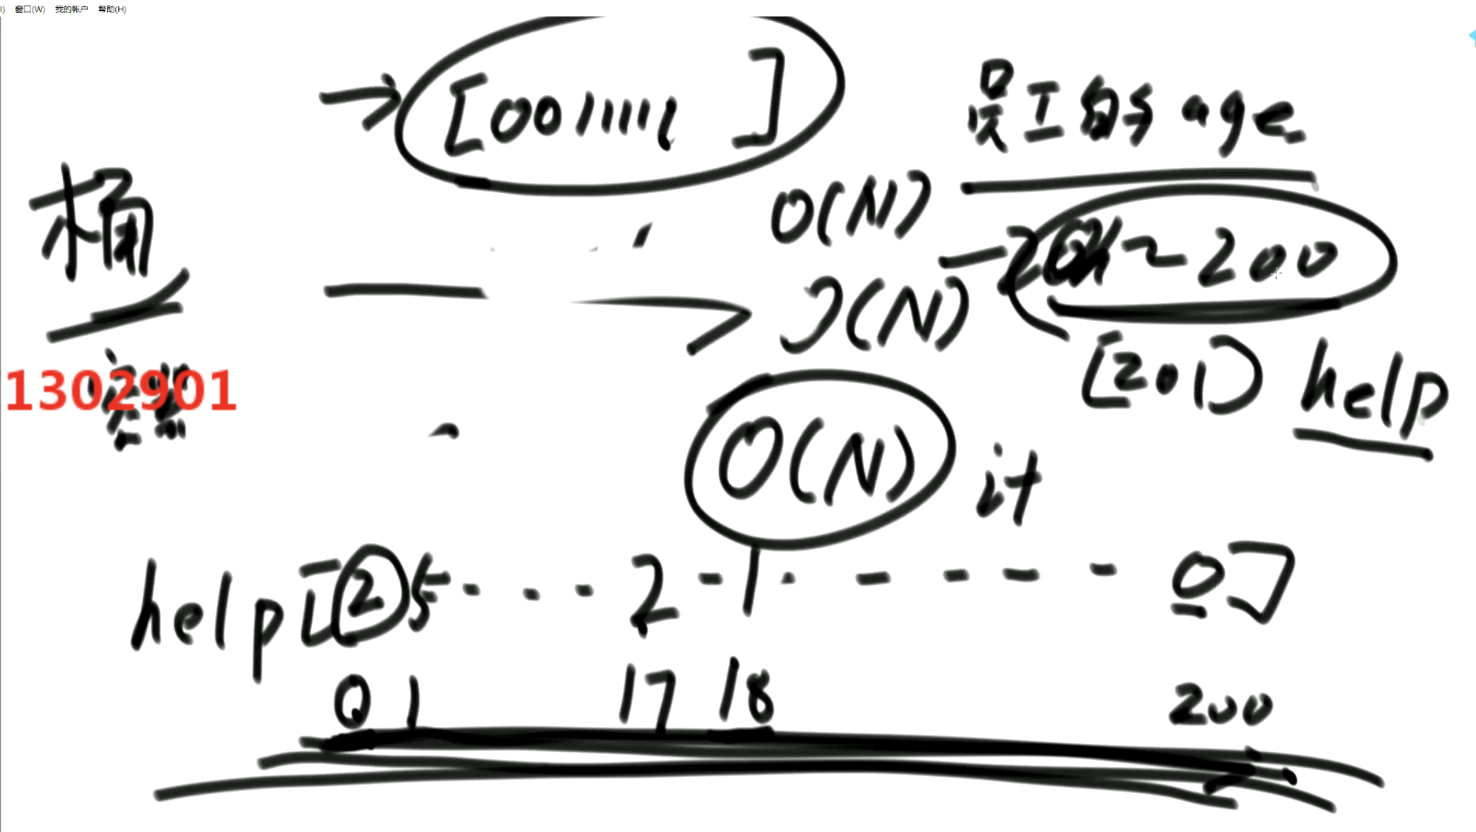 窗口(W) 我的帐户 帮助(H)
[00111111 ]
员工的 age
桶
O(N)
~ 200
O(N)
[201] help
1302901
O(N) it
help[2 5 2 1 0]
0 1 17 18 200